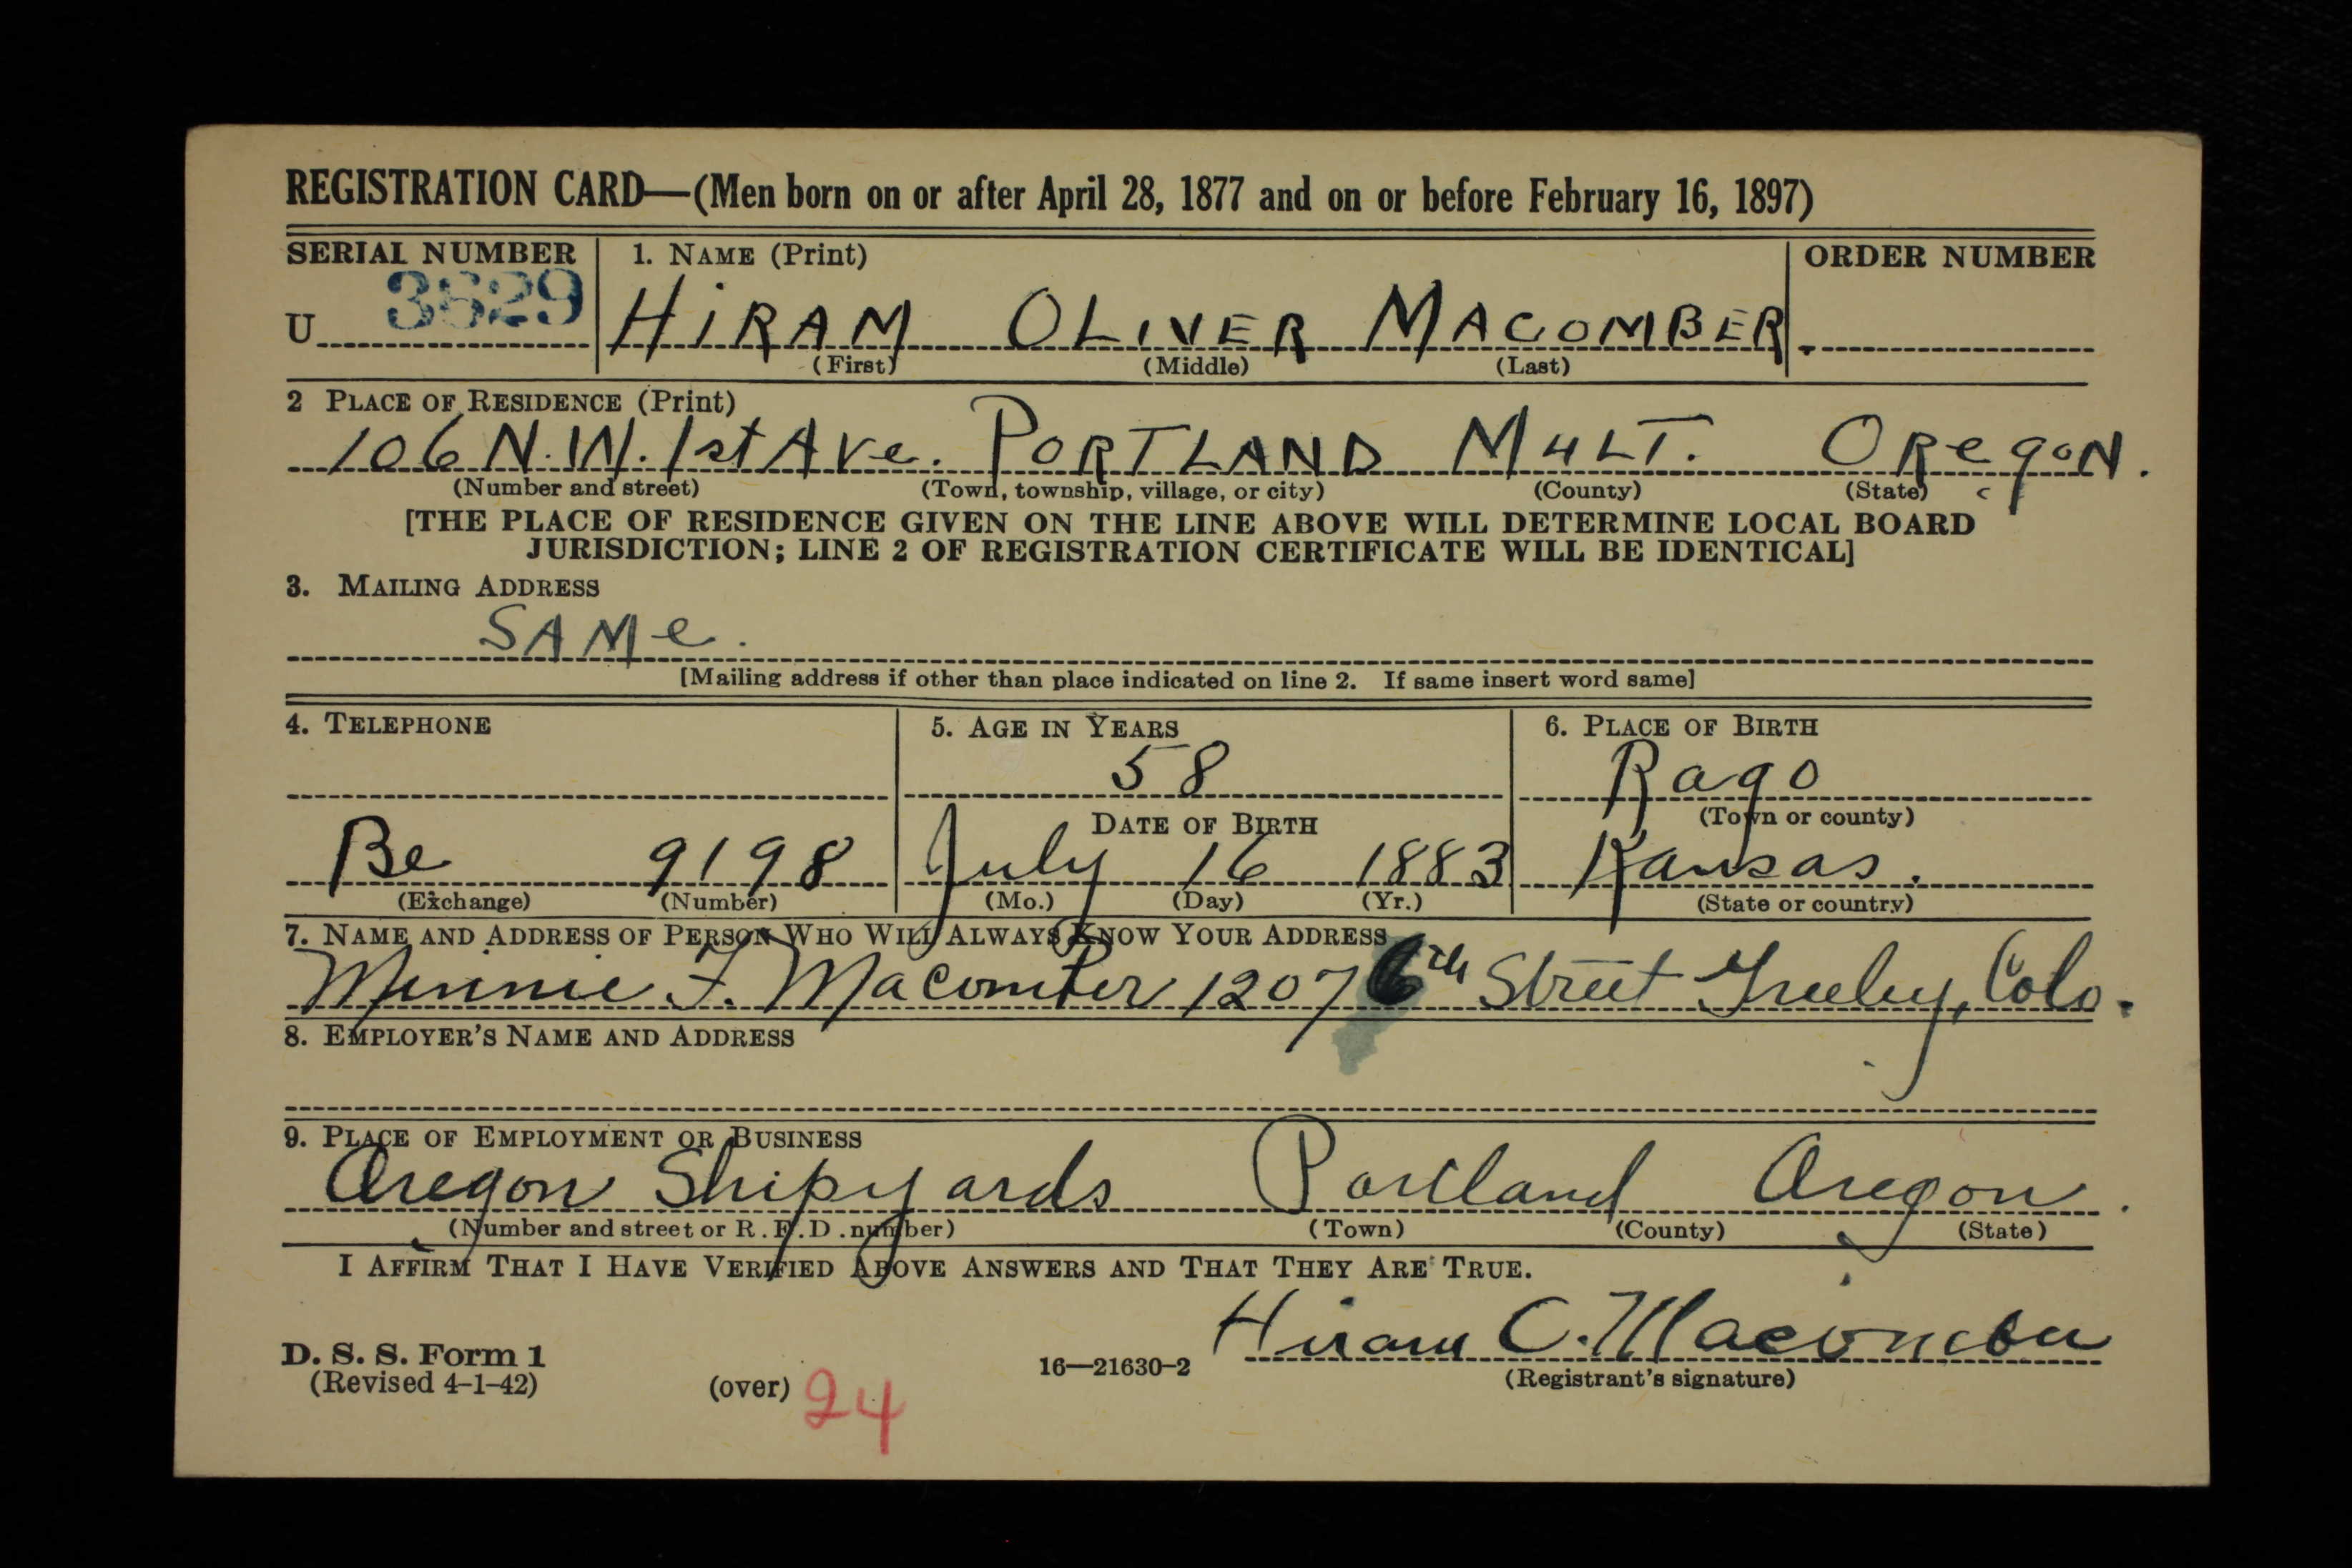 REGISTRATION CARD—(Men born on or after April 28, 1877 and on or before February 16, 1897)
SERIAL NUMBER 1. NAME (Print) ORDER NUMBER
U 3629 HiRAM OLIVER MACOMBER.
(First) (Middle) (Last)
2 PLACE OF RESIDENCE (Print)
106 N.W. 1st Ave. PORTLAND MULT. ORegoN.
(Number and street) (Town, township, village, or city) (County) (State)
[THE PLACE OF RESIDENCE GIVEN ON THE LINE ABOVE WILL DETERMINE LOCAL BOARD
JURISDICTION; LINE 2 OF REGISTRATION CERTIFICATE WILL BE IDENTICAL]
3. MAILING ADDRESS
SAMe.
[Mailing address if other than place indicated on line 2. If same insert word same]
4. TELEPHONE 5. AGE IN YEARS 6. PLACE OF BIRTH
58 Rago
DATE OF BIRTH (Town or county)
Be 9198 July 16 1883 Kansas.
(Exchange) (Number) (Mo.) (Day) (Yr.) (State or country)
7. NAME AND ADDRESS OF PERSON WHO WILL ALWAYS KNOW YOUR ADDRESS
Minnie F. Macomber 1207 6th Street Greeley, Colo.
8. EMPLOYER'S NAME AND ADDRESS
9. PLACE OF EMPLOYMENT OR BUSINESS
Oregon Shipyards Portland Oregon.
(Number and street or R. F. D. number) (Town) (County) (State)
I AFFIRM THAT I HAVE VERIFIED ABOVE ANSWERS AND THAT THEY ARE TRUE.
Hiram O. Macomber
D. S. S. Form 1
(Revised 4-1-42) (over) 24 16—21630-2 (Registrant's signature)